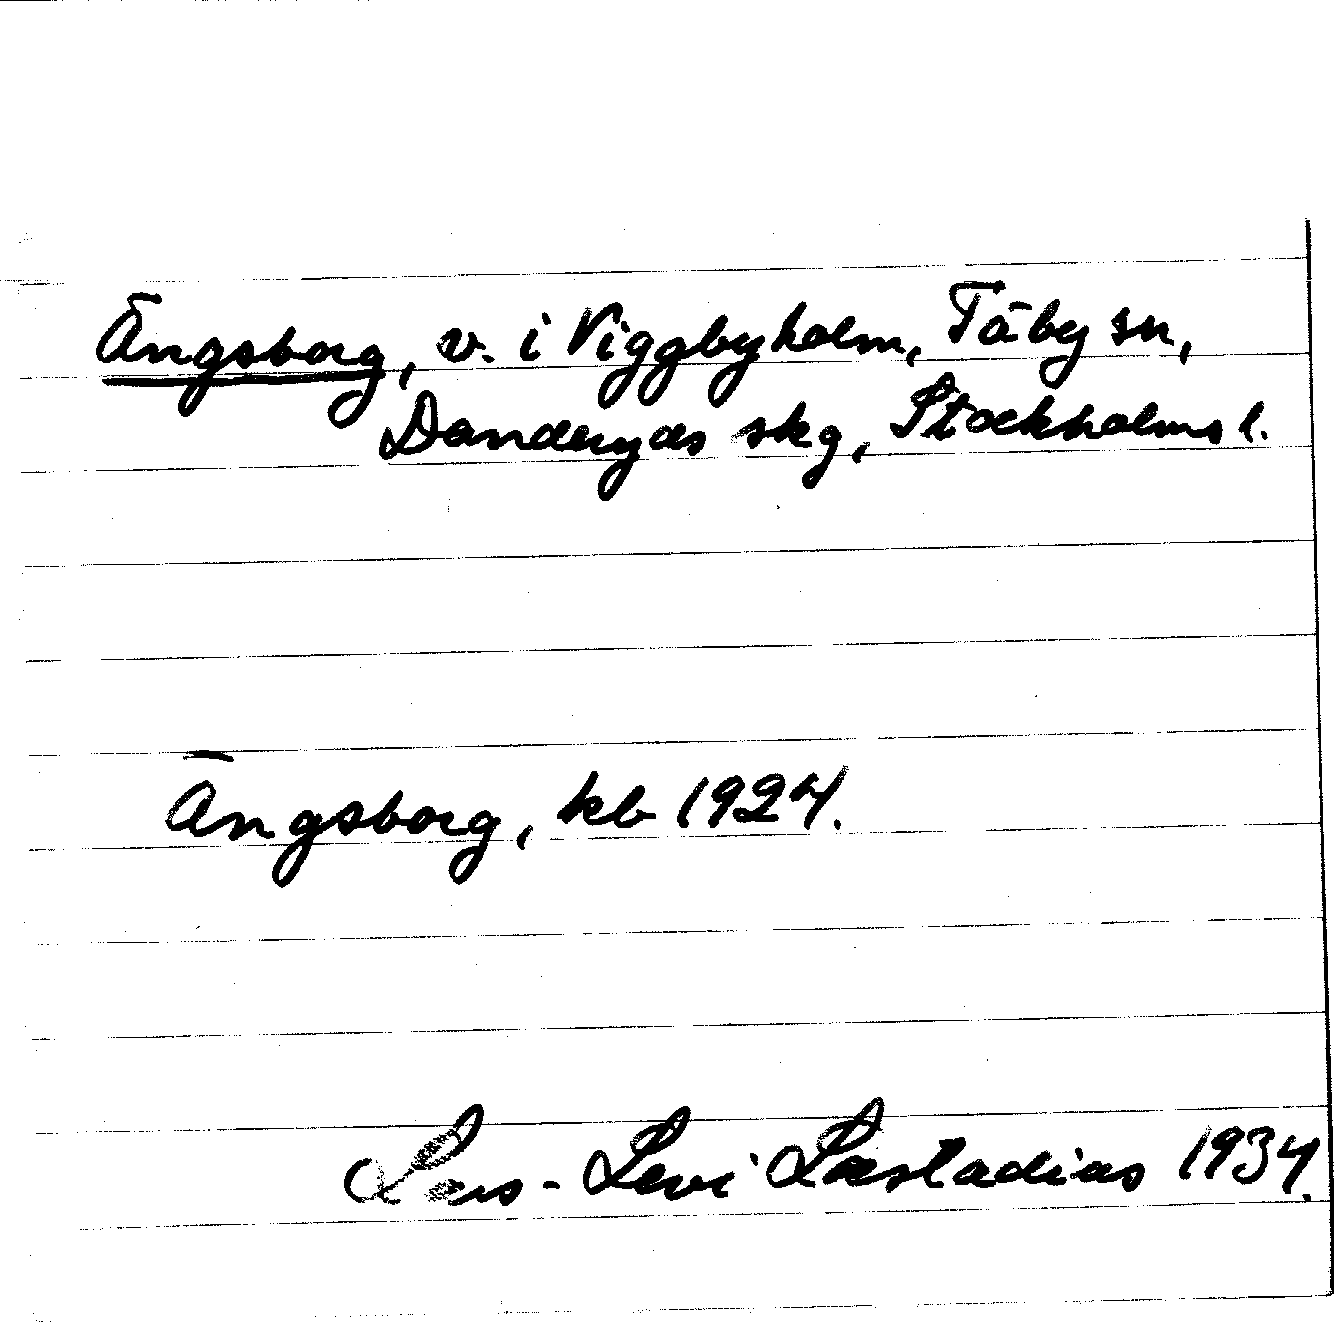 Ängsborg, v. i Viggbyholm, Täby sn,
Danderyds skg, Stockholms l.
Ängsborg, kb 1924.
Lars-Levi Læstadius 1934.